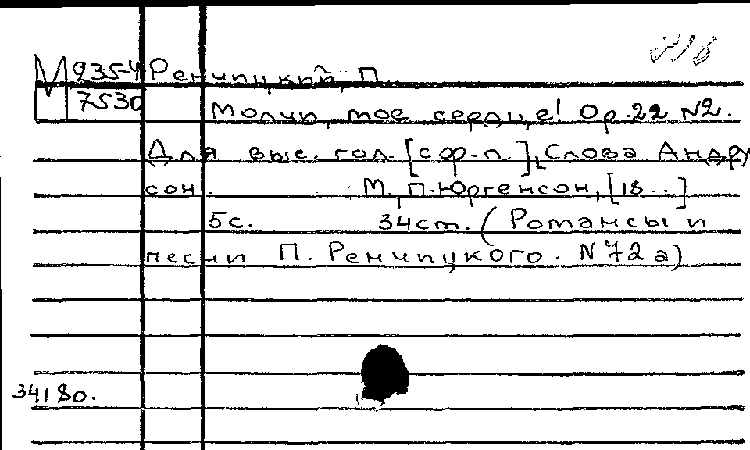 М 935-4 Ренчицкий, П.
7530 Молчи, мое сердце! Op. 22 №2.
Для выс. гол. [с ф.-п.], Слова Андру
сон. М., П. Юргенсон, [18 . .]
5 с. 34 ст. (Романсы и
песни П. Ренчицкого. №72а)
34180.